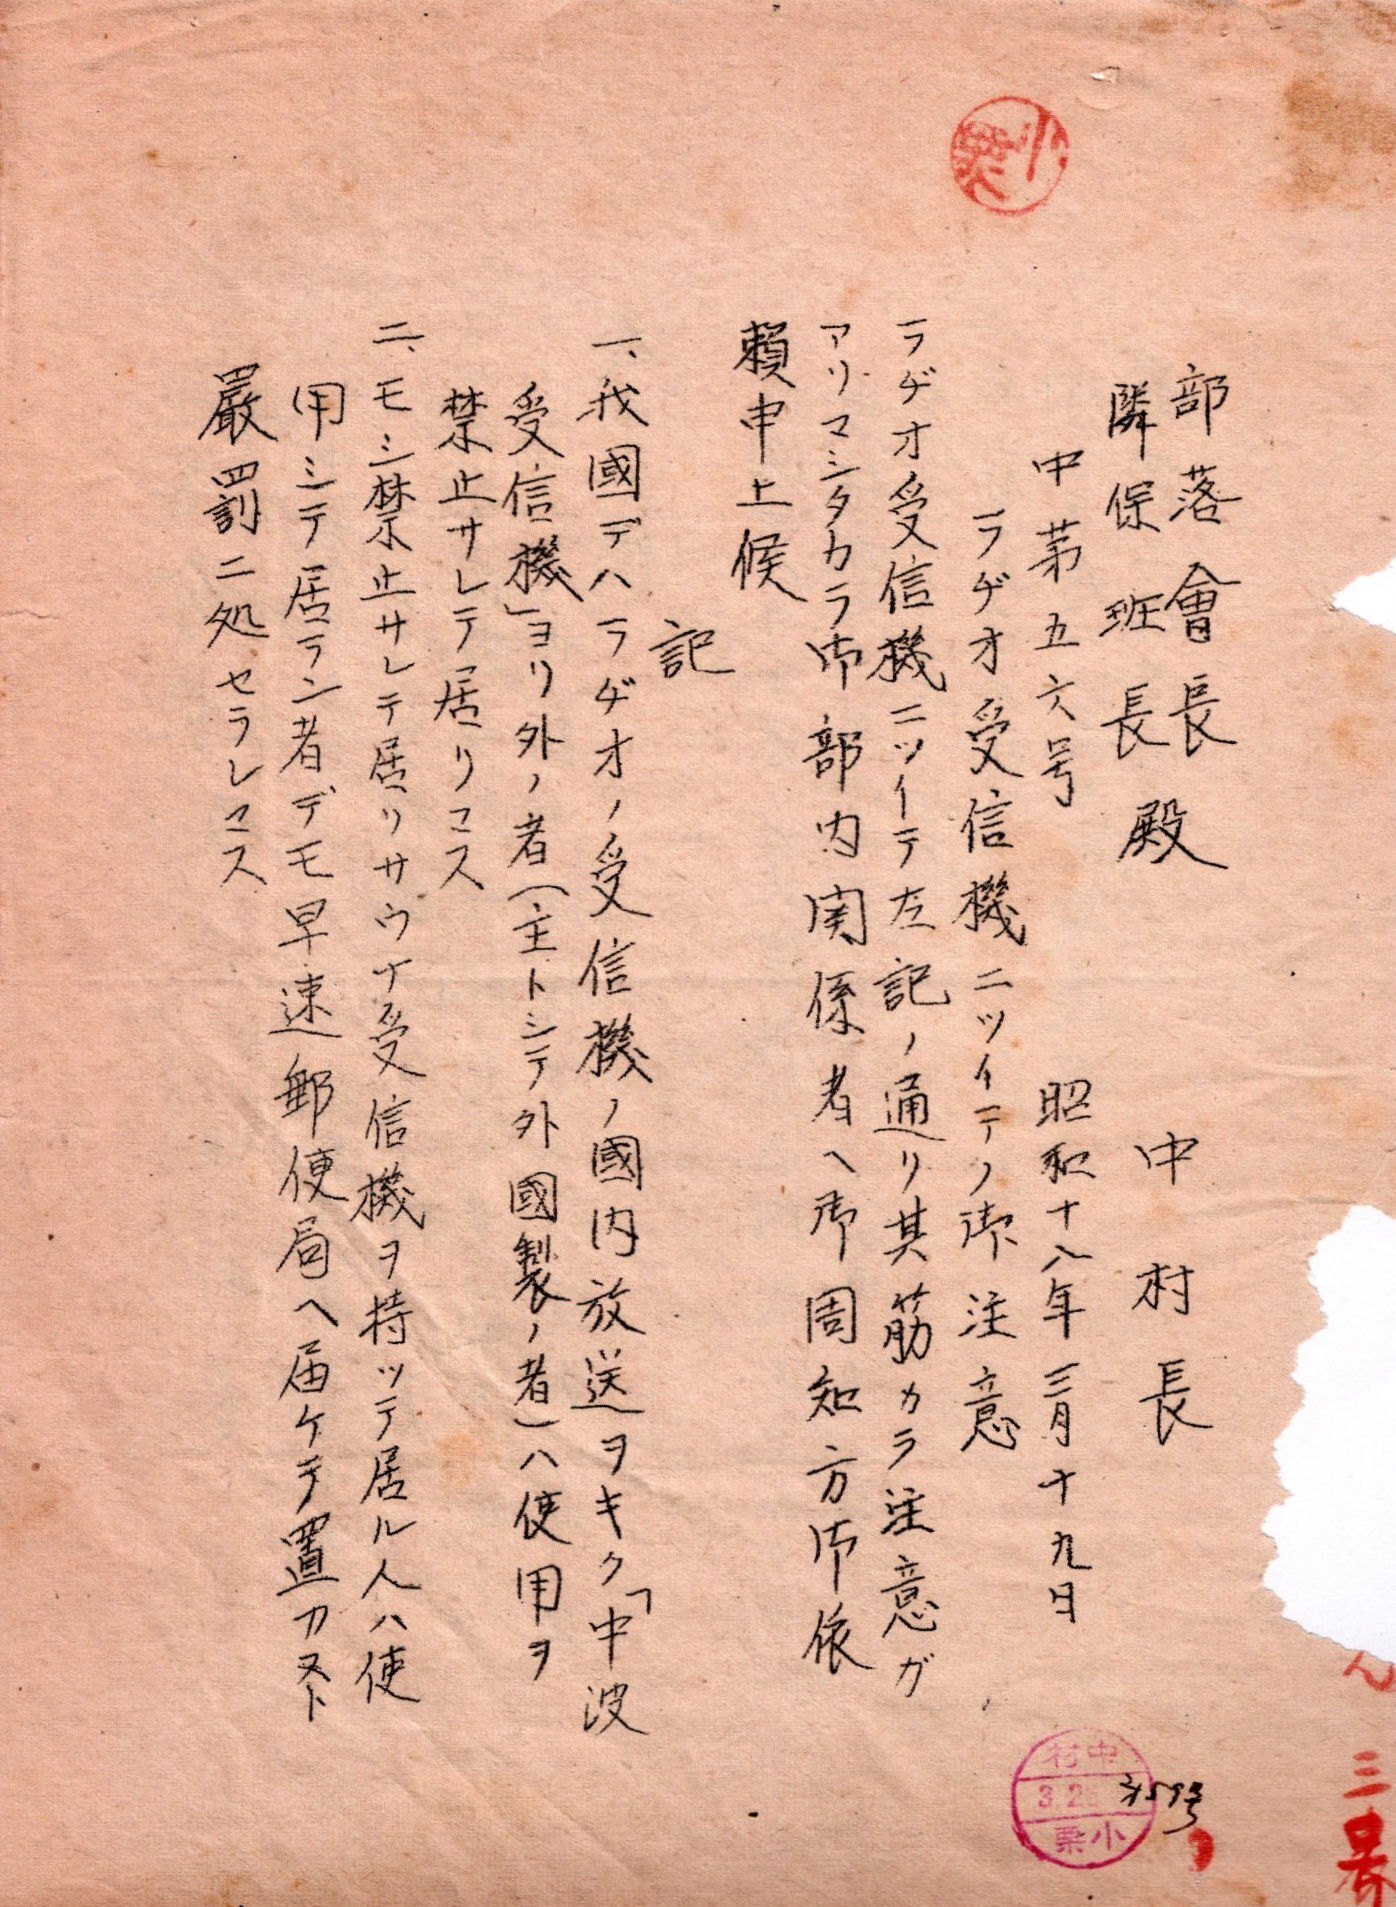 部落會長
隣保班長 殿
中村長
中第五六号 昭和十八年三月十九日
ラヂオ受信機ニツイテノ御注意
ラヂオ受信機ニツイテ左記ノ通リ其筋カラ注意ガ
アリマシタカラ御部内関係者ヘ御周知方御依
賴申上候
記
一、我國デハラヂオノ受信機ノ國内放送ヲキク「中波
受信機」ヨリ外ノ者(主トシテ外國製ノ者)ハ使用ヲ
禁止サレテ居リマス
二、モシ禁止サレテ居リサウナ受信機ヲ持ツテ居ル人ハ使
用シテ居ラン者デモ早速郵便局ヘ届ケテ置カヌト
嚴罰ニ処セラレマス
小栗
中村
小栗